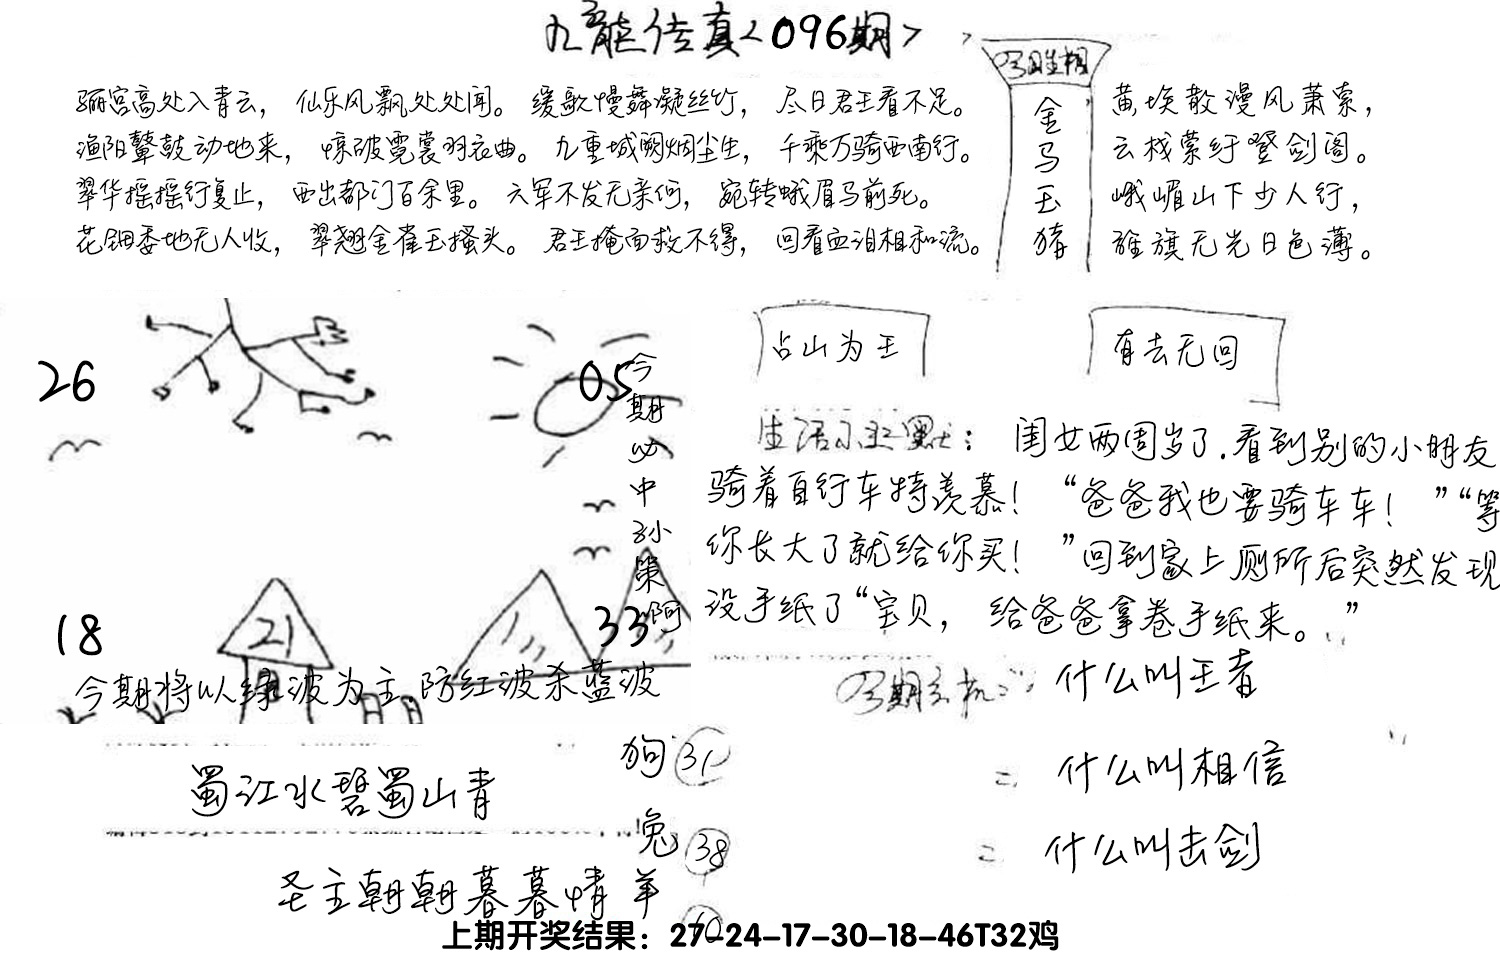 九龙传真<096期>
骊宫高处入青云, 仙乐风飘处处闻。 缓歌慢舞凝丝竹, 尽日君王看不足。
渔阳鼙鼓动地来, 惊破霓裳羽衣曲。 九重城阙烟尘生, 千乘万骑西南行。
翠华摇摇行复止, 西出都门百余里。 六军不发无奈何, 宛转蛾眉马前死。
花钿委地无人收, 翠翘金雀玉搔头。 君王掩面救不得, 回看血泪相和流。
金马玉猪
黄埃散漫风萧索,
云栈萦纡登剑阁。
峨嵋山下少人行,
旌旗无光日色薄。
26
05
今期必中孙策啊
18
21
33
今期将以绿波为主.防红波杀蓝波
占山为王
有去无回
生活小幽默: 闺女两周岁了.看到别的小朋友
骑着自行车特羡慕! “爸爸我也要骑车车! ”“等
你长大了就给你买! ”回到家上厕所后突然发现
没手纸了“宝贝, 给爸爸拿卷手纸来。”
什么叫王者
= 什么叫相信
= 什么叫击剑
蜀江水碧蜀山青
圣主朝朝暮暮情
狗 31
兔 38
羊
上期开奖结果：27-24-17-30-18-46T32鸡